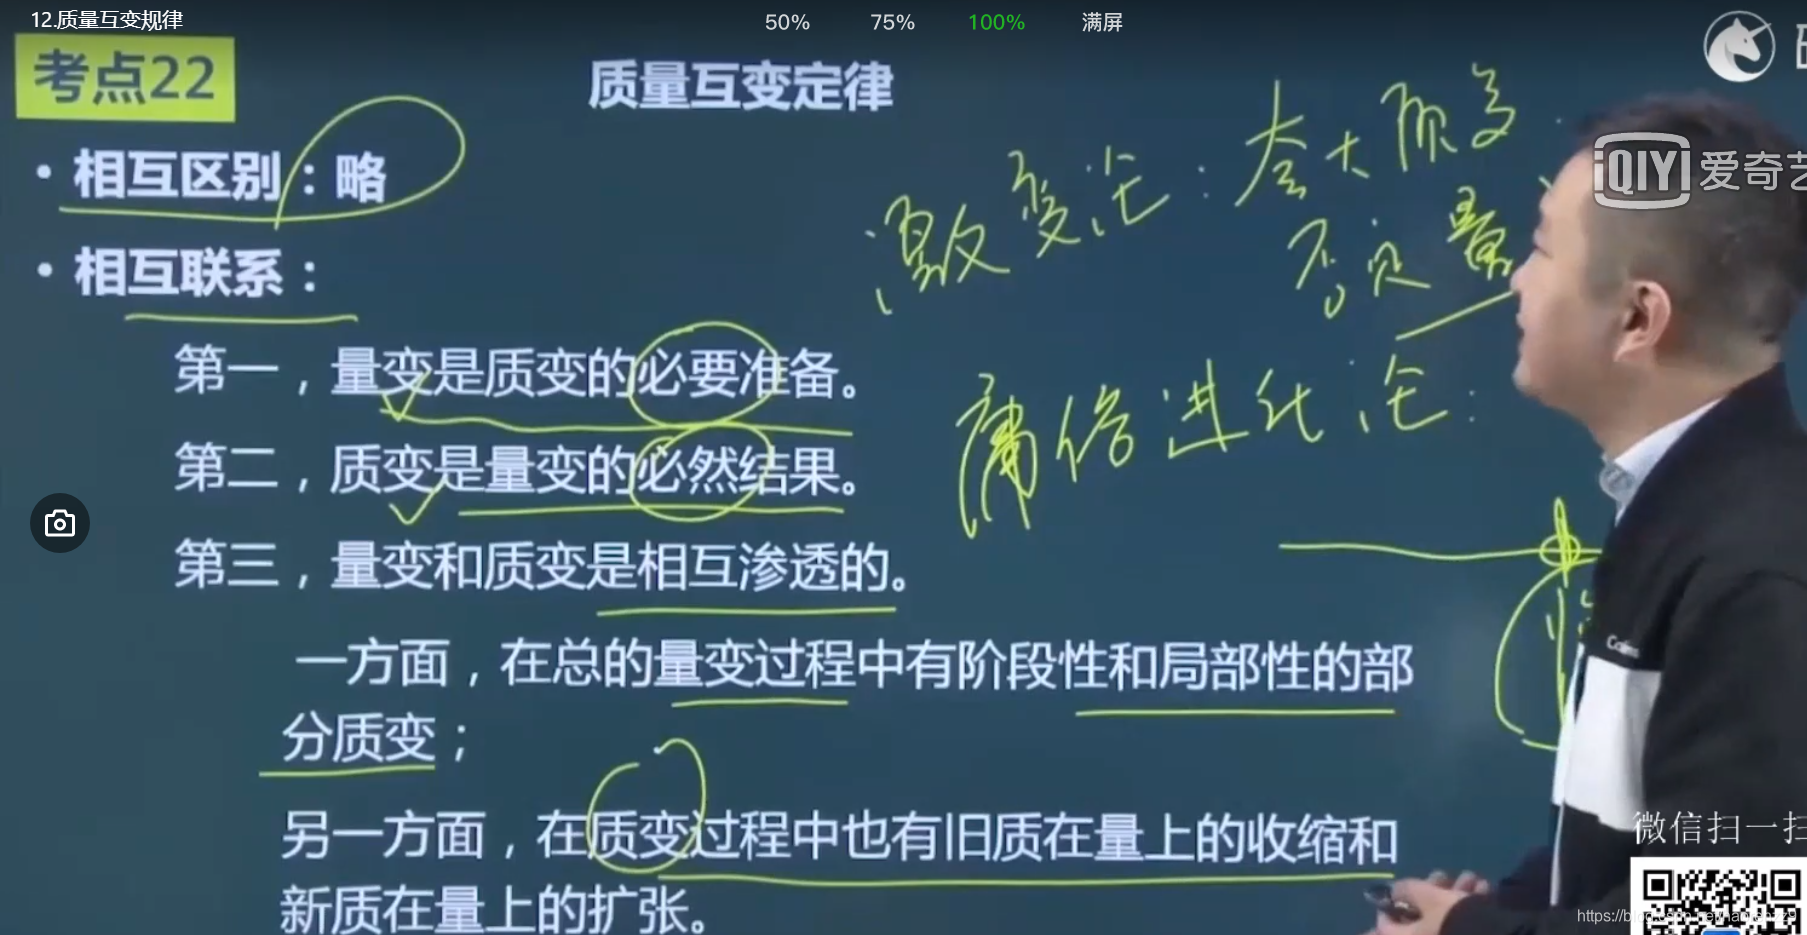 12.质量互变规律
50% 75% 100% 满屏
考点22
质量互变定律
• 相互区别：略
• 相互联系：
第一，量变是质变的必要准备。
第二，质变是量变的必然结果。
第三，量变和质变是相互渗透的。
一方面，在总的量变过程中有阶段性和局部性的部
分质变；
另一方面，在质变过程中也有旧质在量上的收缩和
新质在量上的扩张。
激变论：夸大质变
否定量
庸俗进化论：
QIYI 爱奇艺
微信扫一扫